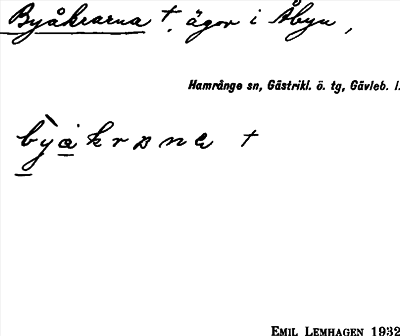 Byåkrarna †, ägor i Åbyn,
Hamrånge sn, Gästrikl. ö. tg, Gävleb. l.
bỳåkrɒnɑ †
EMIL LEMHAGEN 1932